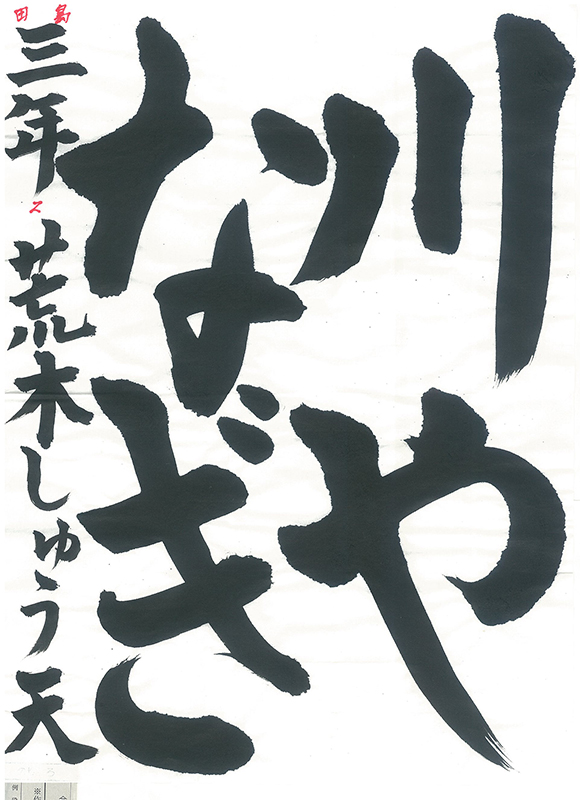 川や
なぎ
三年 荒木しゅう天
田島